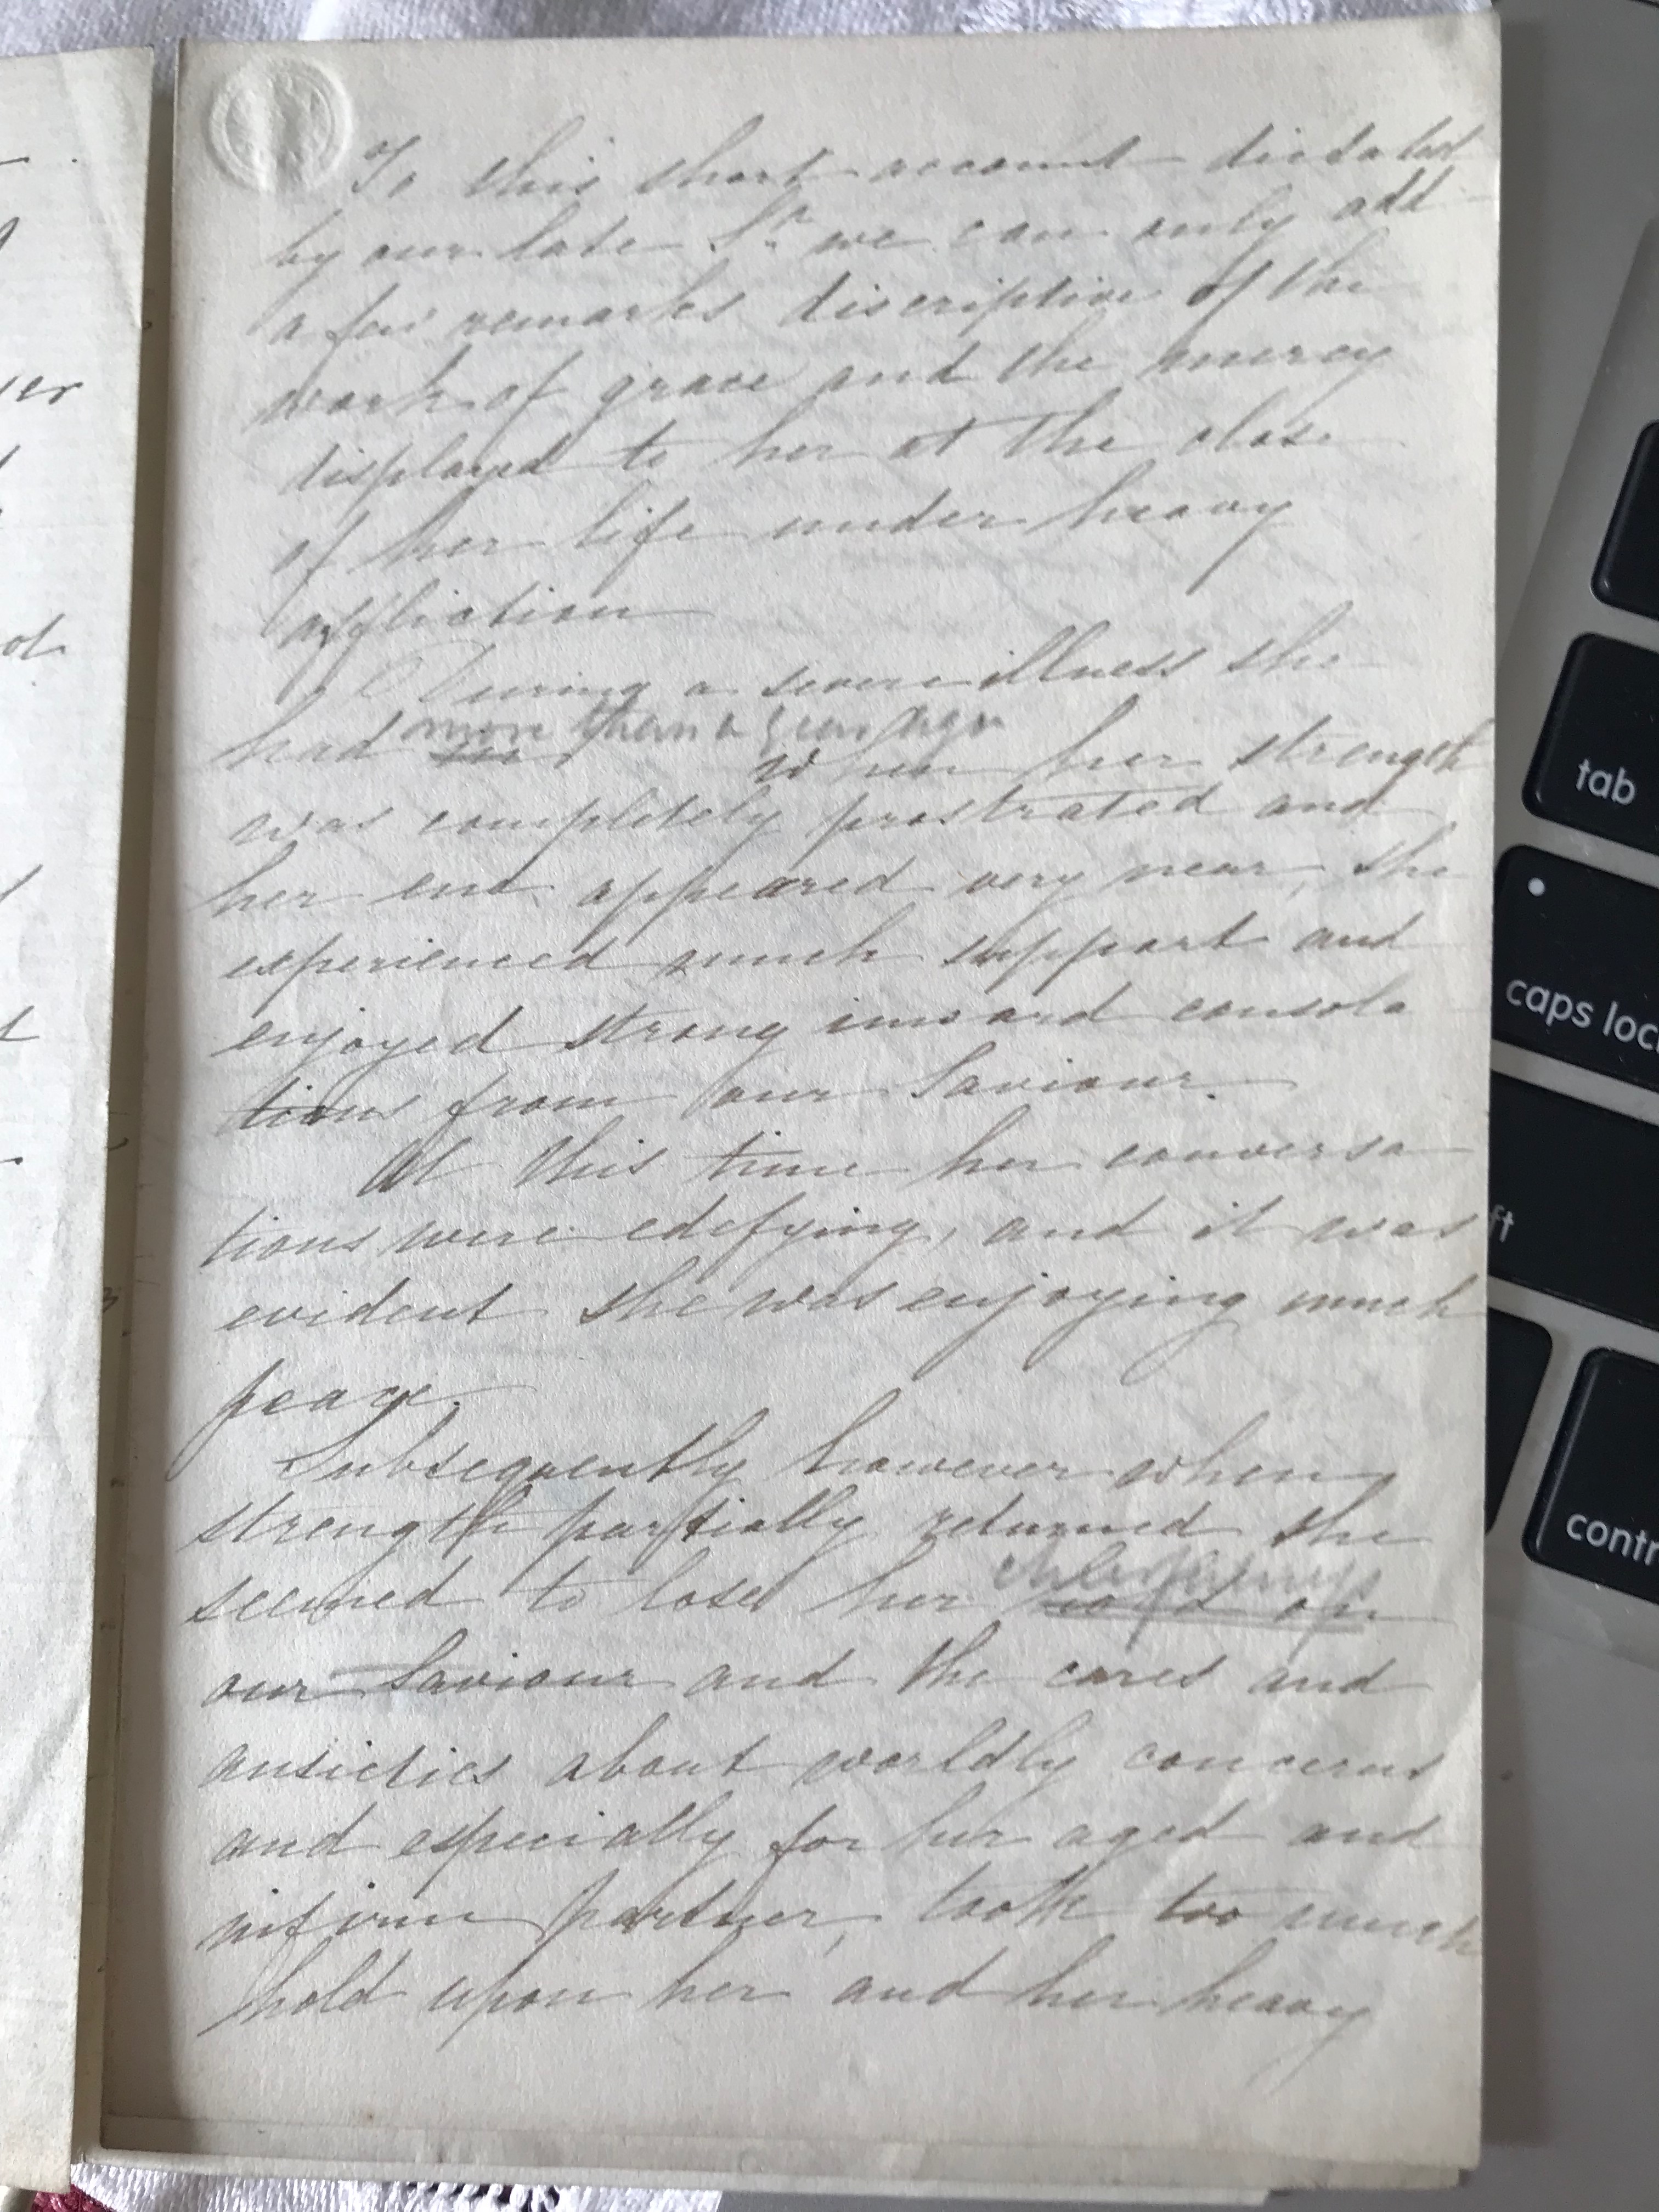 To this short account dictated
by our late Sr. we can only add
a few remarks discriptive of the
work of grace and the mercy
displayed to her at the close
of her life under heavy
affliction
During a severe illness she
had more than a year ago when her strength
was completely prostrated and
her end appeared very near, she
experienced much support and
enjoyed strong inward consola
tions from our Saviour.
At this time her conversa
tions were edifying, and it was
evident she was enjoying much
peace.
Subsequently however when
strength partially returned she
seemed to lose her hold on
our Saviour and the cares and
ansieties about worldly concerns
and especially for her aged and
infirm partner, took too much
hold upon her and her heavy
tab
caps loc
ft
contr